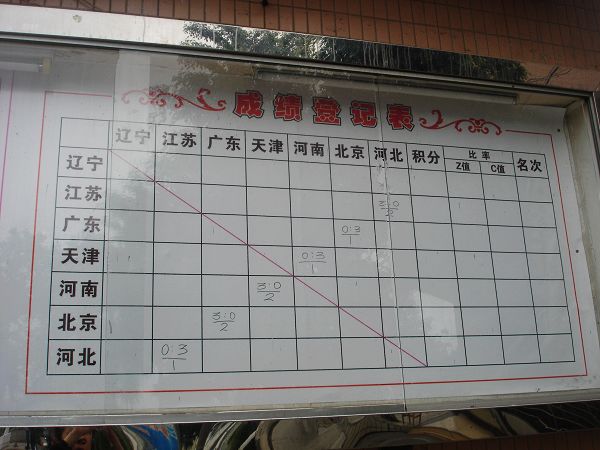 成绩登记表
辽宁 江苏 广东 天津 河南 北京 河北 积分 比率 名次
Z值 C值
辽宁
江苏 3:0 2
广东 0:3 1
天津 0:3 1
河南 3:0 2
北京 3:0 2
河北 0:3 1